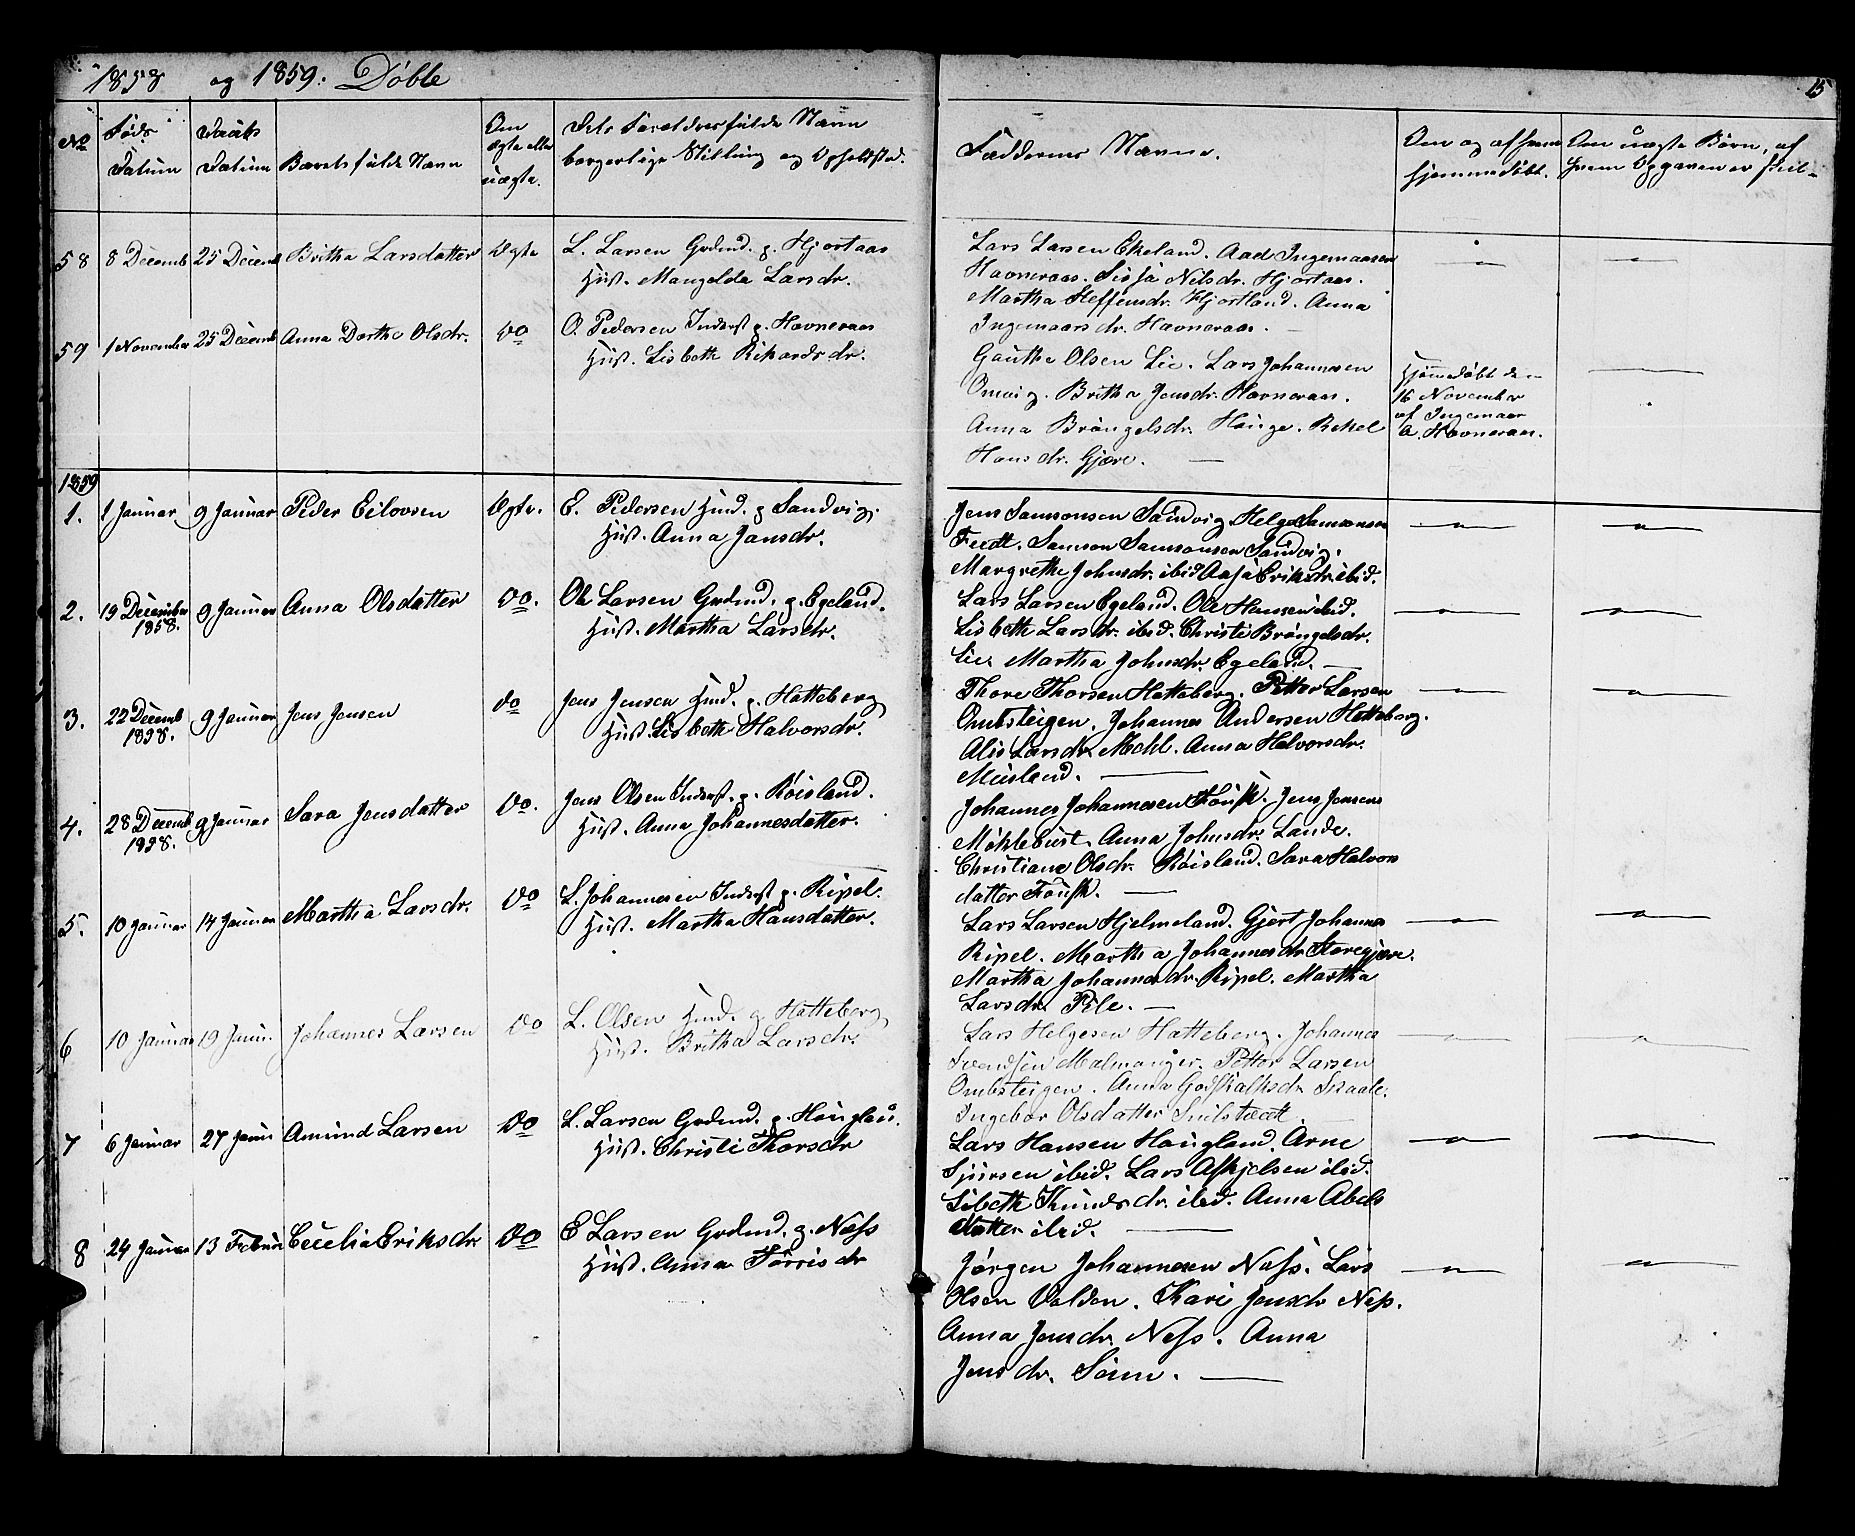 1858 og 1859. Døbte
15
No
Føds Datum
Daabs Datum
Barnets fulde Navn
Om ægte eller uægte.
Dets Forældres fulde Navn borgerlige Stilling og Opholdsted.
Faddernes Navne.
Om og af hvem hjemmedøbt.
Om uægte Børn, af hvem Opgaven er skeet
58 8 Decemb 25 Decemb Britha Larsdatter Ægte L. Larsen Grdmd. p. Hjortaas
Hust. Mangelda Larsdr.
Lars Larsen Ekeland. Aad Ingemaarsen
Havneraas. Sissa Nilsdr. Hjortaas.
Martha Steffensdr. Hjortland. Anna
Ingemaarsdr. Havneraas.
59 1 November 25 Decemb Anna Dorthe Olsdr. Do O. Pedersen Inderst p. Havneraas
Hust. Lisbeth Rikardsdr.
Gauthe Olsen Lie. Lars Johannesen
Omvig. Britha Jensdr. Havneraas.
Anna Brøngelsdr. Hauge. Rekel
Hansdr. Gjære.
Hjemmedøbt den
16 November
af Ingemaar
A. Havneraas.
1859
1. 1 Januar 9 Januar Peder Eilovsen Ægte. E. Pedersen Husd. p Sandvig.
Hust. Anna Jansdr.
Jens Samsonsen Sandvig Helge Samsonsen
Feedt. Samson Samsonsen Sandvig.
Margrethe Johnsdr. ibid Aasa Eriksdr. ibid.
2. 19 December 1858. 9 Januar Anna Olsdatter Do. Ole Larsen Grdmd. p. Egeland.
Hust. Martha Larsdr.
Lars Larsen Egeland. Ole Hansen ibid.
Lisbeth Larsdr. ibid. Christi Brøngelsdr.
Lie. Martha Johnsdr. Egeland.
3. 22 Decemb 1858. 9 Januar Jens Jensen Do Jens Jensen Husd. p. Hatteberg
Hust. Lisbeth Halvorsdr.
Thore Thorsen Hatteberg. Petter Larsen
Ombsteigen. Johannes Andersen Hatteberg.
Alis Larsdr. Mehl. Anna Halvorsdr.
Musland.
4. 28 Decemb 1858. 9 Januar Sara Jensdatter Do. Jens Olsen Inderst. p. Røisland.
Hust. Anna Johannesdatter.
Johannes Johannesen Fousk. Jens Jensens
Møklebust. Anna Johnsdr. Lande.
Christiane Olsdr. Røisland. Sara Halvors
datter Fousk.
5. 10 Januar 14 Januar Martha Larsdr. Do L. Johannesen Inderst p. Ripel.
Hust. Martha Hansdatter.
Lars Larsen Hjelmeland. Gjert Johannes
Ripel. Martha Johannesdr. Storegjære.
Martha Johannesdr. Ripel. Martha
Larsdr. Pile.
6 10 Januar 19 Janu. Johannes Larsen Do L. Olsen Husd. p. Hatteberg
Hust. Britha Larsdr.
Lars Helgesen Hatteberg. Johannes
Svendsen Malmanger. Petter Larsen
Ombsteigen. Anna Godskalksdr. Skaale.
Ingebor Olsdatter
7 6 Januar 27 Janu Amund Larsen Do L. Larsen Grdmd. p. Hougland.
Hust. Christi Thorsdr
Lars Hansen Haugland. Arne
Sjursen ibid. Lars Askjelsen ibid.
Lisbeth Knudsdr. ibid. Anna Abels
datter ibid.
8 24 Januar 13 Februar Cecelia Eriksdr. Do E Larsen Grdmd. p. Næss
Hust. Anna Torrisdr
Jørgen Johannesen Næss. Lars
Olsen Valden. Kari Jensdr Næss.
Anna Jensdr. Næss. Anna
Jensdr. Seim.